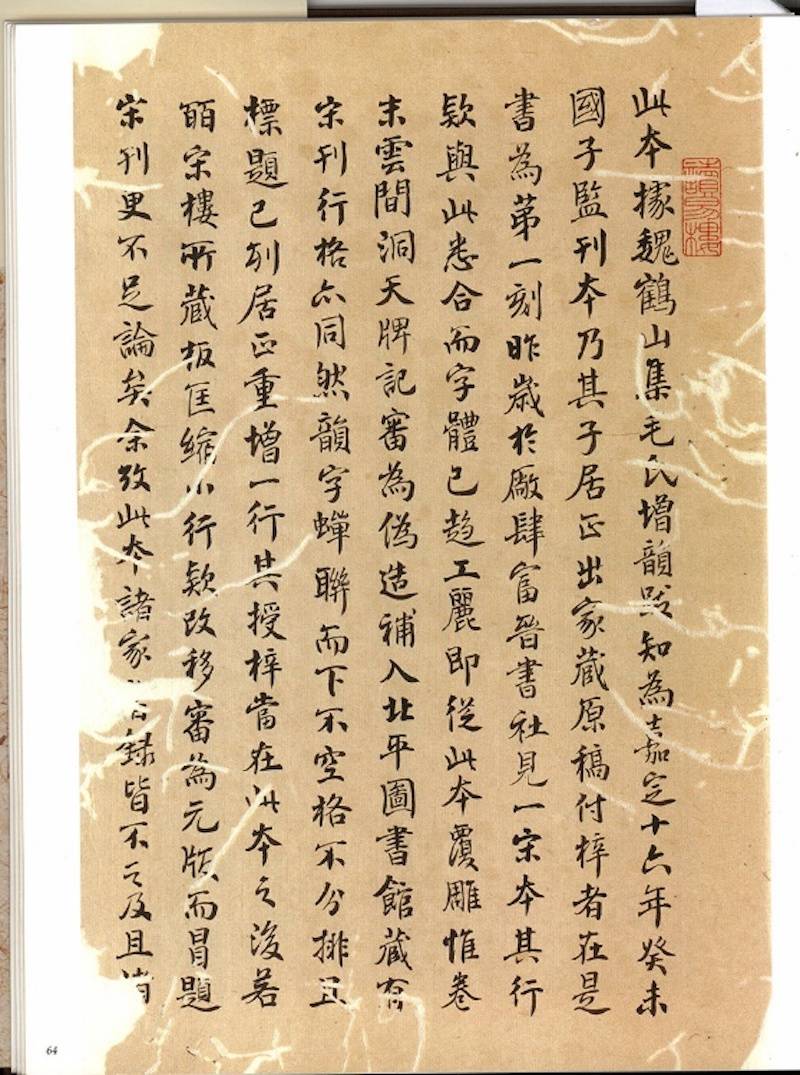 讀易樓
此本據魏鶴山集毛氏增韻跋知為嘉定十六年癸未
國子監刊本乃其子居正出家藏原稿付梓者在是
書為第一刻昨歲於廠肆富晉書社見一宋本其行
款與此悉合而字體已趋工麗即從此本覆雕惟卷
末雲間洞天牌記審為偽造補入北平圖書館藏有
宋刊行格亦同然韻字蟬聯而下不空格不分排且
標題已列居正重增一行其授梓當在此本之後若
皕宋樓所藏板匡縮小行款改移審為元版而冒題
宋刊更不足論矣余攷此本諸家錄皆不之及且
64